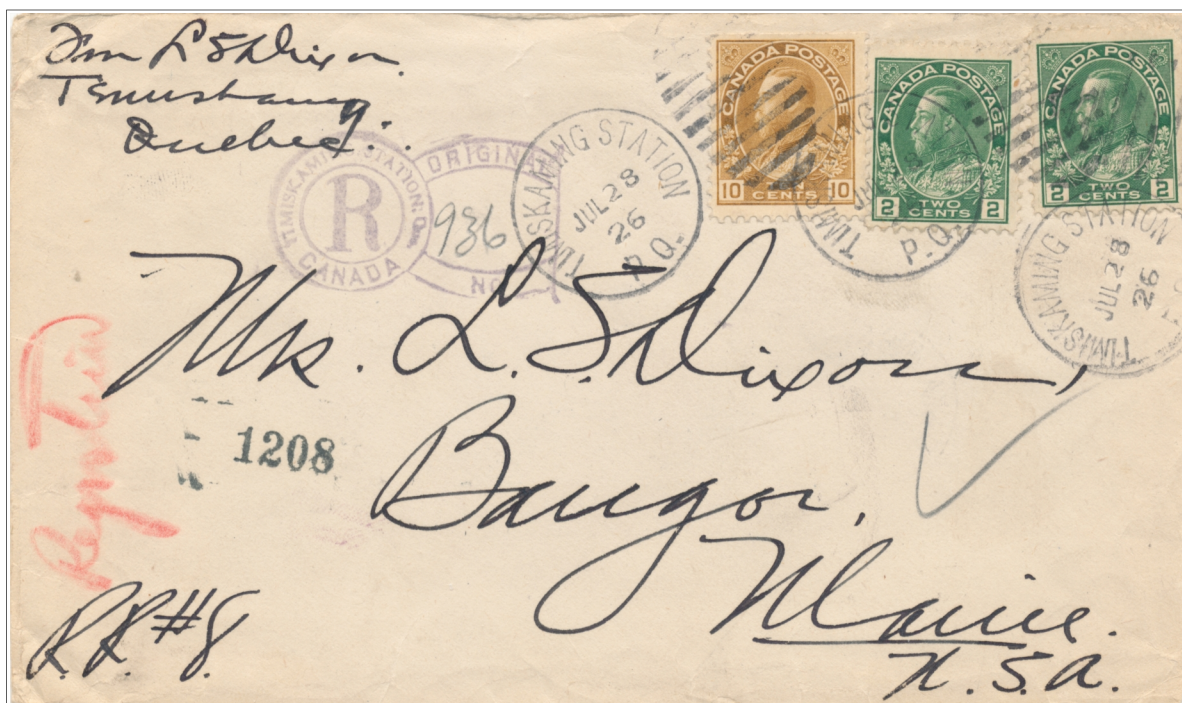 From L S Dixon.
Temiskaming
Quebec.
TIMISKAMING STATION, Que.
R
CANADA
ORIGIN
936
No
TIMISKAMING STATION
JUL 28
26
P.Q.
CANADA POSTAGE
10 TEN CENTS 10
CANADA POSTAGE
2 TWO CENTS 2
CANADA POSTAGE
2 TWO CENTS 2
P.Q.
TIMISKAMING STATION
JUL 28
26
Mrs. L. S. Dixon,
Bangor,
Maine.
U.S.A.
1208
R.R. #8.